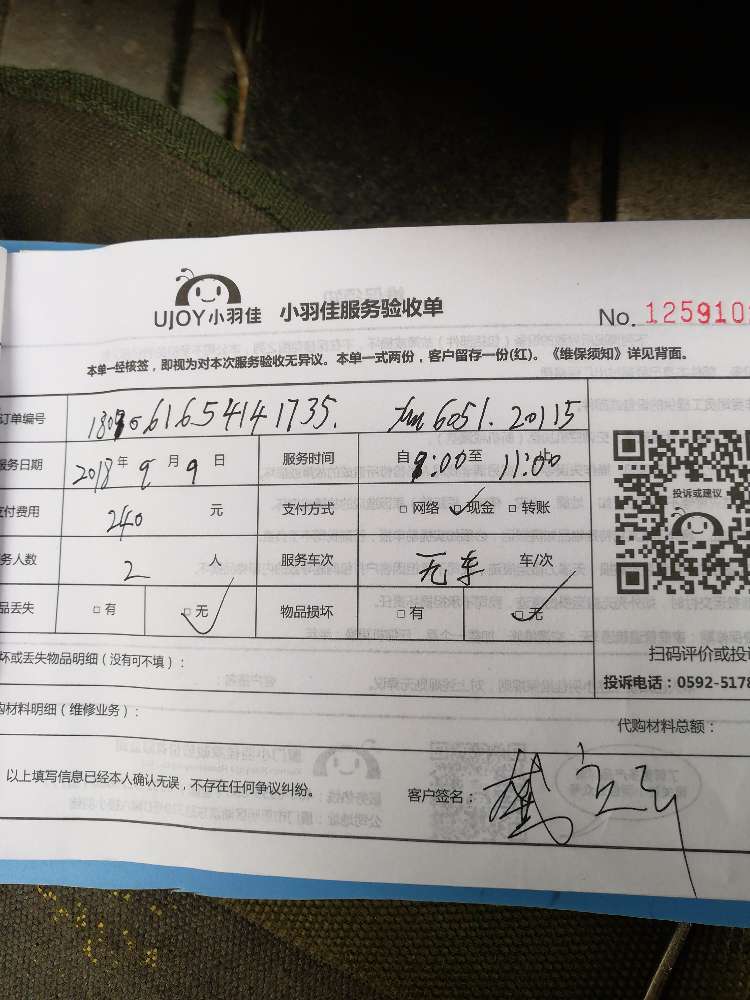 UJOY小羽佳 小羽佳服务验收单 No. 125910
本单一经核签，即视为对本次服务验收无异议。本单一式两份，客户留存一份(红)。《维保须知》详见背面。
订单编号 61654141735. 6051. 20115
服务日期 2018年9月9日 服务时间 自8:00至11:00
付费用 240 元 支付方式 □网络 ✓现金 □转账
务人数 2 人 服务车次 无车 车/次
品丢失 □有 □无 ✓ 物品损坏 □有 □无 ✓
投诉或建议
坏或丢失物品明细（没有可不填）：
扫码评价或投诉
投诉电话：0592-5178
购材料明细（维修业务）：
代购材料总额：
以上填写信息已经本人确认无误，不存在任何争议纠纷。 客户签名：